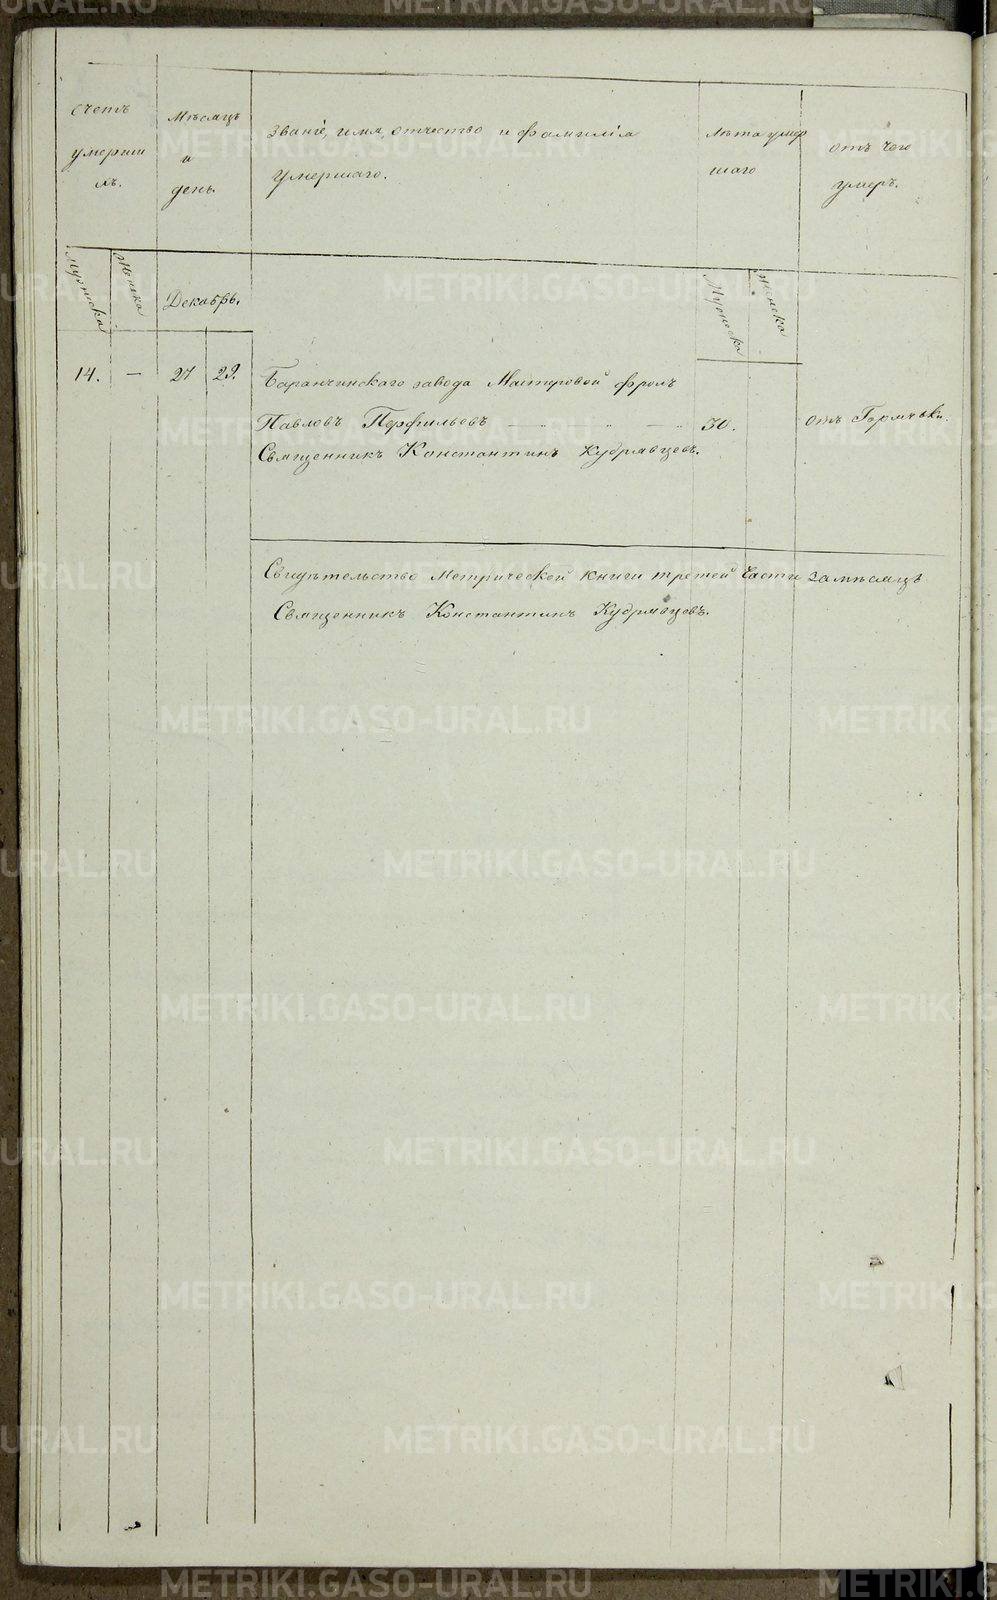 Счетъ
умерши
хъ.
Мѣсяцъ
и
день.
Званіе, имя, отчество и фамиліа
умершаго.
Лѣта умер
шаго
отъ чего
умеръ.
Мужеска
Женска
Декабрь.
Мужеска
Женска
14. — 27 29. Баранчинскаго завода Мастеровой Фролъ
Павловъ Перфильевъ 30. отъ Горячьки.
Священникъ Константинъ Кудрявцевъ.
Свидѣтельство Метрической книги третей части за мѣсяцъ
Священникъ Константинъ Кудрявцевъ.
METRIKI.GASO-URAL.RU